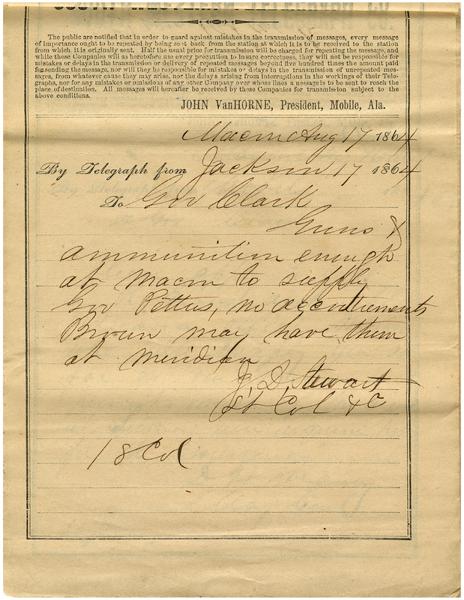 The public are notified that in order to guard against mistakes in the transmission of messages, every message
of importance ought to be repeated by being sent back from the station at which it is to be received to the station
from which it is originally sent. Half the usual price for transmission will be charged for repeating the message, and
while these Companies will as heretofore use every precaution to insure correctness, they will not be responsible for
mistakes or delays in the transmission or delivery of repeated messages beyond five hundred times the amount paid
for sending the message, nor will they be responsible for mistakes or delays in the transmission of unrepeated messages,
from whatever cause they may arise, nor for delays arising from interruptions in the workings of their Telegraphs,
nor for any mistakes or omissions of any other Company over whose lines a message is to be sent to reach the
place of destination. All messages will hereafter be received by these Companies for transmission subject to the
above conditions.
JOHN VanHORNE, President, Mobile, Ala.
Macon Aug 17 1864
By Telegraph from Jackson 17 1864
To Gov Clark
Guns &
ammunition enough
at Macon to supply
Gov Pettus, no accoutrements
Brown may have them
at meridian
J. D. Stewart
Lt Col &c
18 Col